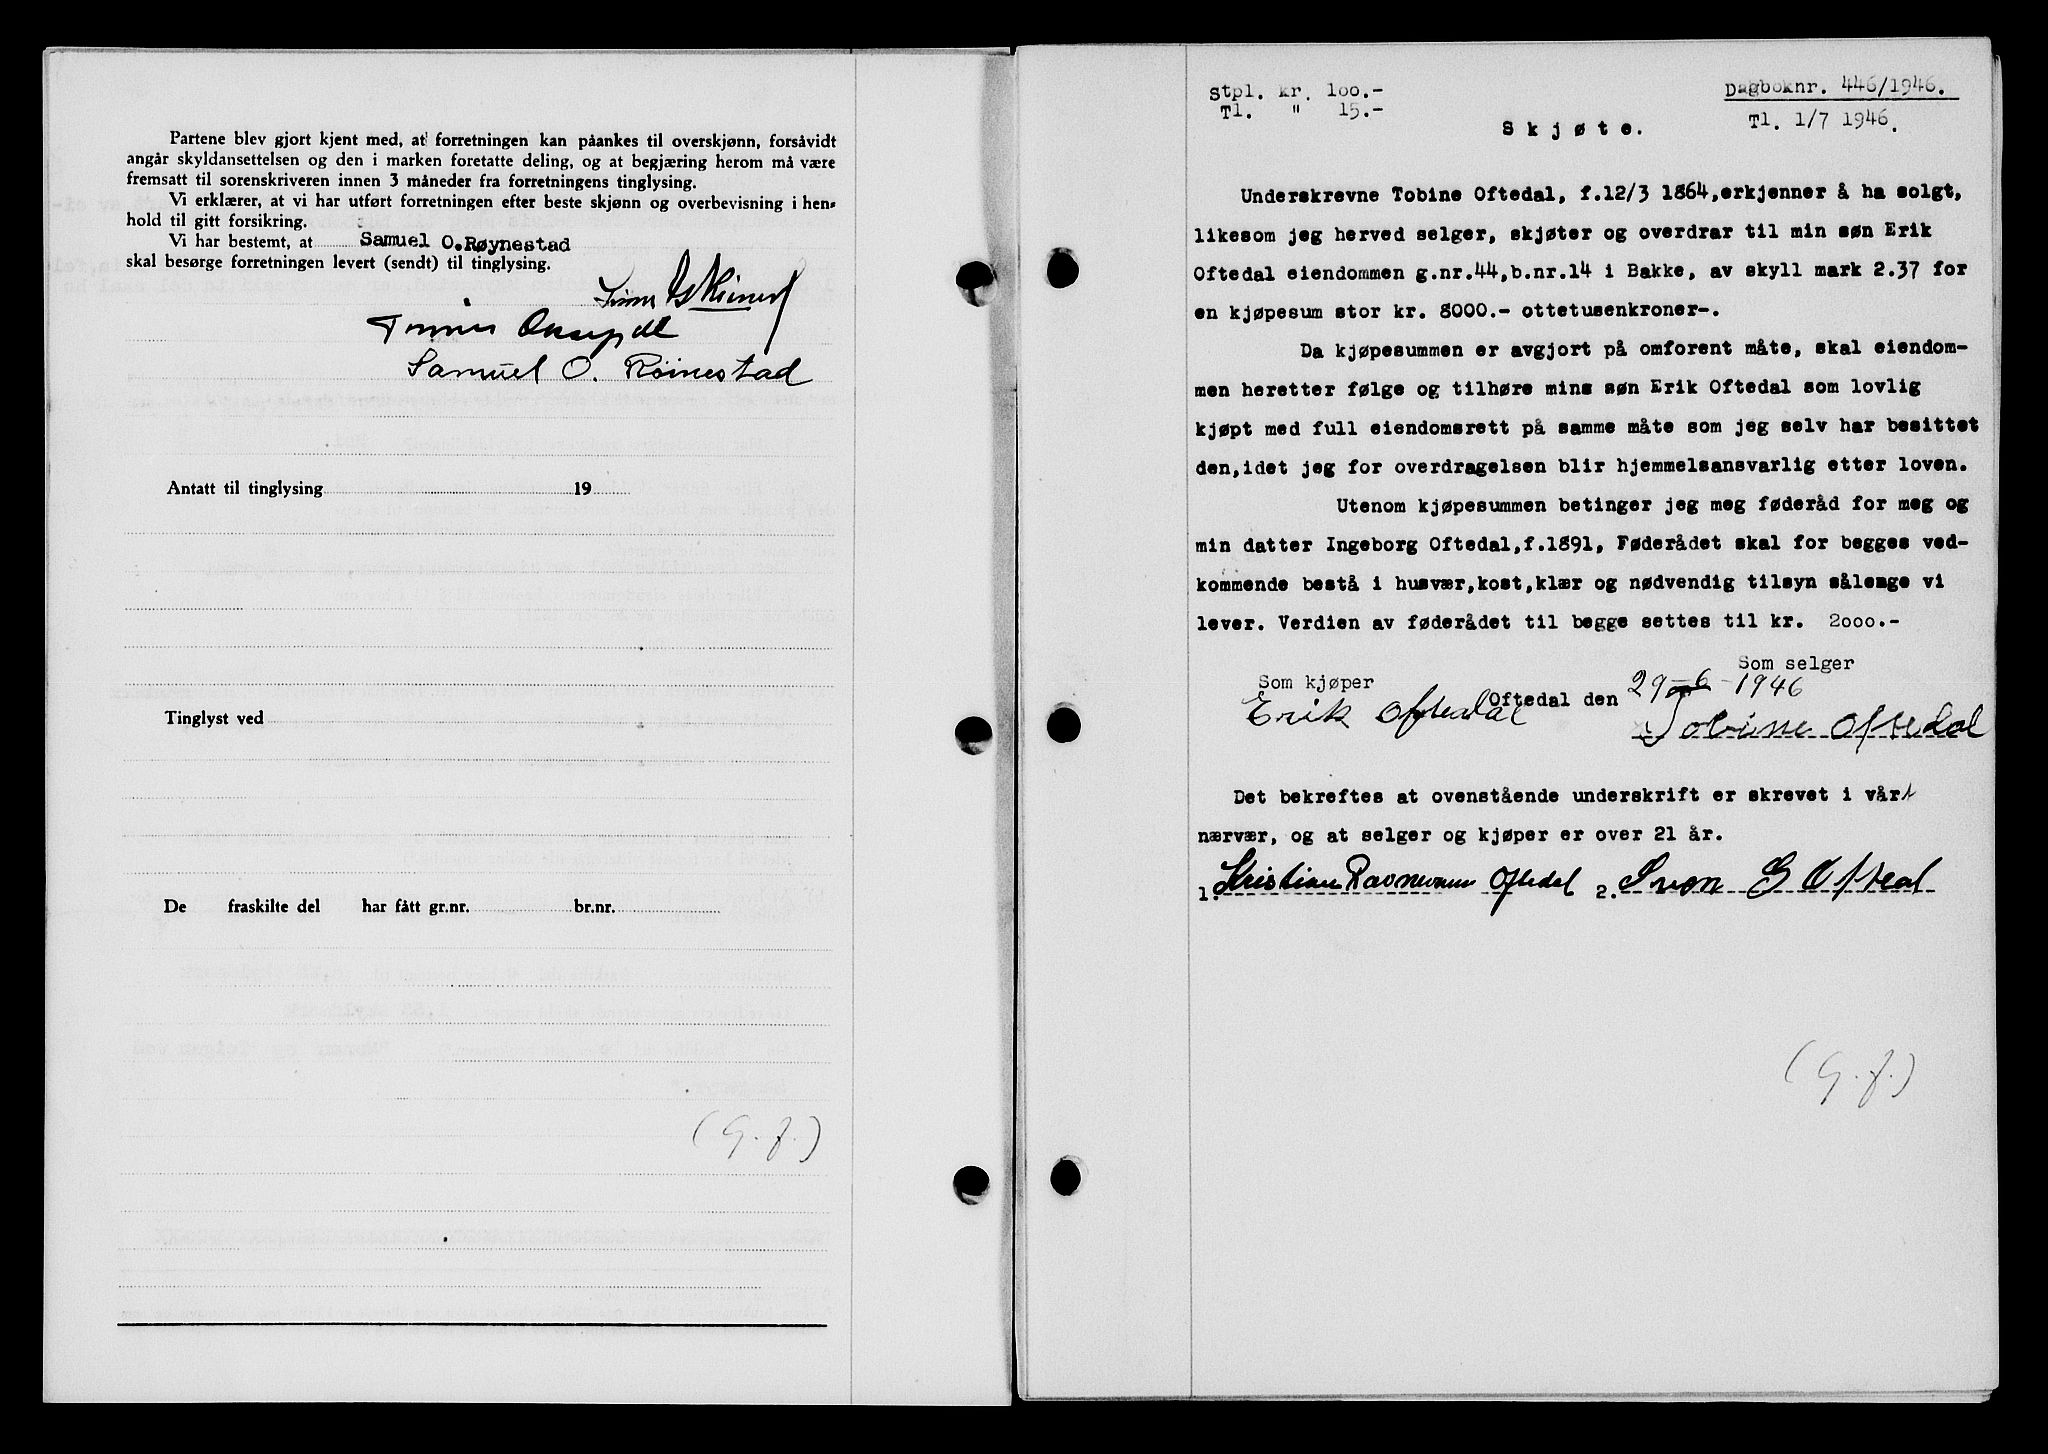 Partene blev gjort kjent med, at forretningen kan påankes til overskjønn, forsåvidt
angår skyldansettelsen og den i marken foretatte deling, og at begjæring herom må være
fremsatt til sorenskriveren innen 3 måneder fra forretningens tinglysing.
Vi erklærer, at vi har utført forretningen efter beste skjønn og overbevisning i hen-
hold til gitt forsikring.
Vi har bestemt, at Samuel O. Røynestad
skal besørge forretningen levert (sendt) til tinglysing.
Samuel O. Røinestad
Antatt til tinglysing 19
Tinglyst ved
De fraskilte del har fått gr.nr. br.nr.
(G. f.)
Stpl. kr. 100.-
Tl. " 15.-
Dagboknr. 446/1946.
Tl. 1/7 1946.
Skjøte.
Underskrevne Tobine Oftedal, f.12/3 1864,erkjenner å ha solgt,
likesom jeg herved selger, skjøter og overdrar til min søn Erik
Oftedal eiendommen g.nr.44,b.nr.14 i Bakke, av skyll mark 2.37 for
en kjøpesum stor kr. 8000.- ottetusenkroner-.
Da kjøpesummen er avgjort på omforent måte, skal eiendom-
men heretter følge og tilhøre mins søn Erik Oftedal som lovlig
kjøpt med full eiendomsrett på samme måte som jeg selv har besittet
den,idet jeg for overdragelsen blir hjemmelsansvarlig etter loven.
Utenom kjøpesummen betinger jeg meg føderåd for meg og
min datter Ingeborg Oftedal,f.1891, Føderådet skal for begges ved-
kommende bestå i husvær,kost,klær og nødvendig tilsyn sålenge vi
lever. Verdien av føderådet til begge settes til kr. 2000.-
Som selger
Som kjøper
Oftedal den 29-6-1946
Erik Oftedal
Tobine Oftedal
Det bekreftes at ovenstående underskrift er skrevet i vårt
nærvær, og at selger og kjøper er over 21 år.
1. Kristian Oftedal 2. Sven G Oftedal
(G. f.)